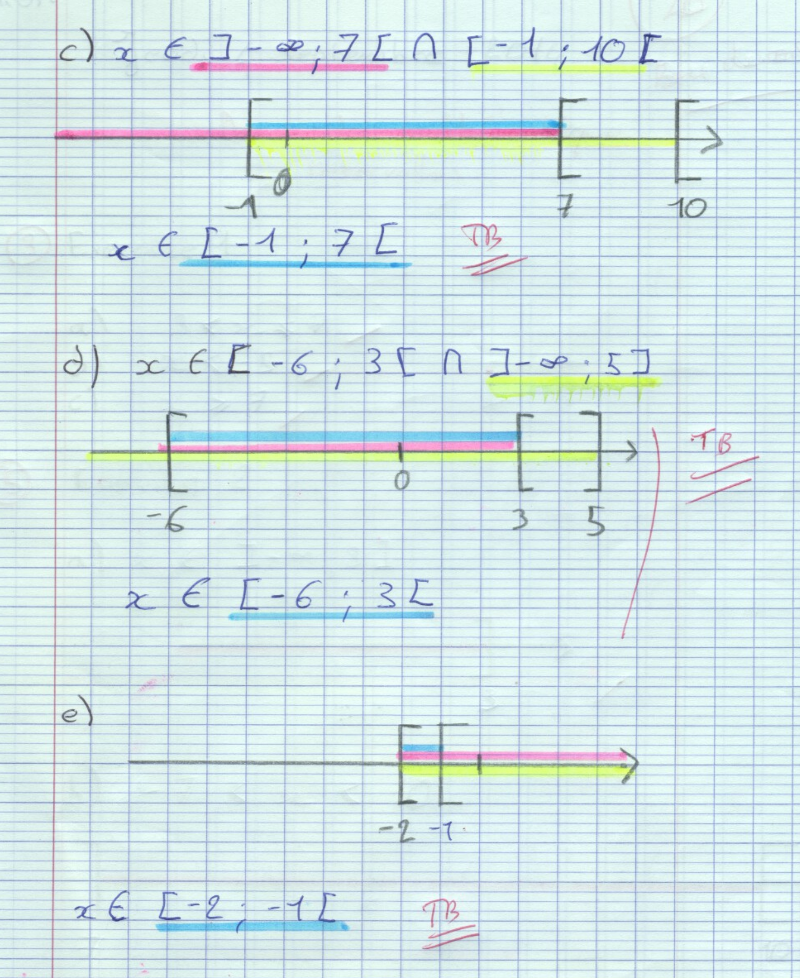 c) x ∈ ]-∞ ; 7 [ ∩ [-1 ; 10 [
-1 0 7 10
x ∈ [-1 ; 7 [ TB
d) x ∈ [ -6 ; 3 [ ∩ ]-∞ ; 5 ]
TB
-6 0 3 5
x ∈ [-6 ; 3 [
e)
-2 -1
x ∈ [-2 ; -1 [ TB